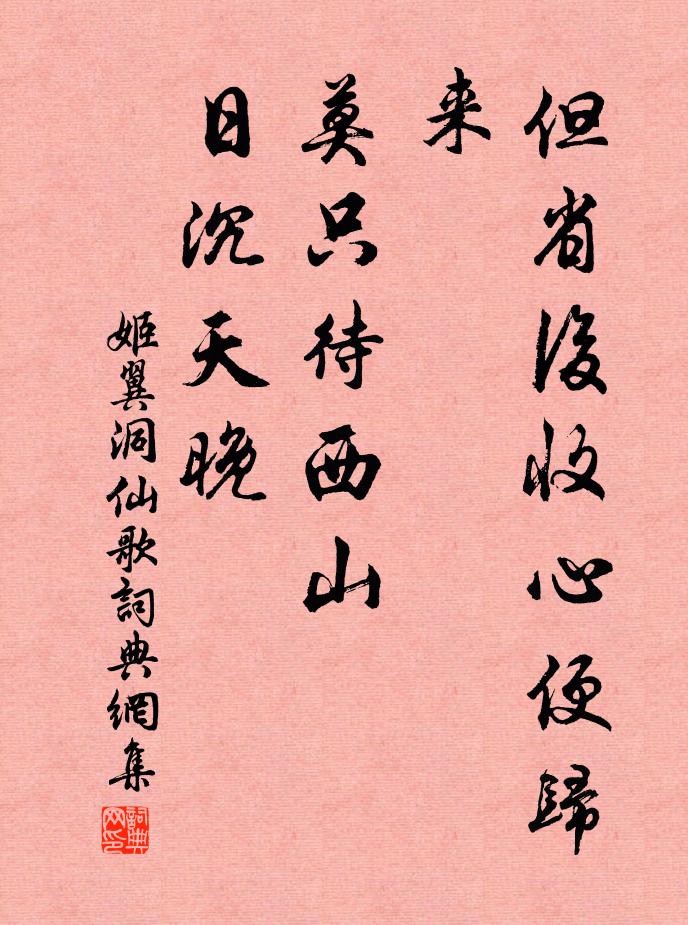 但省後收心便歸
来
莫只待西山
日沉天晚
姬翼洞仙歌詞典網集
詞典
网印